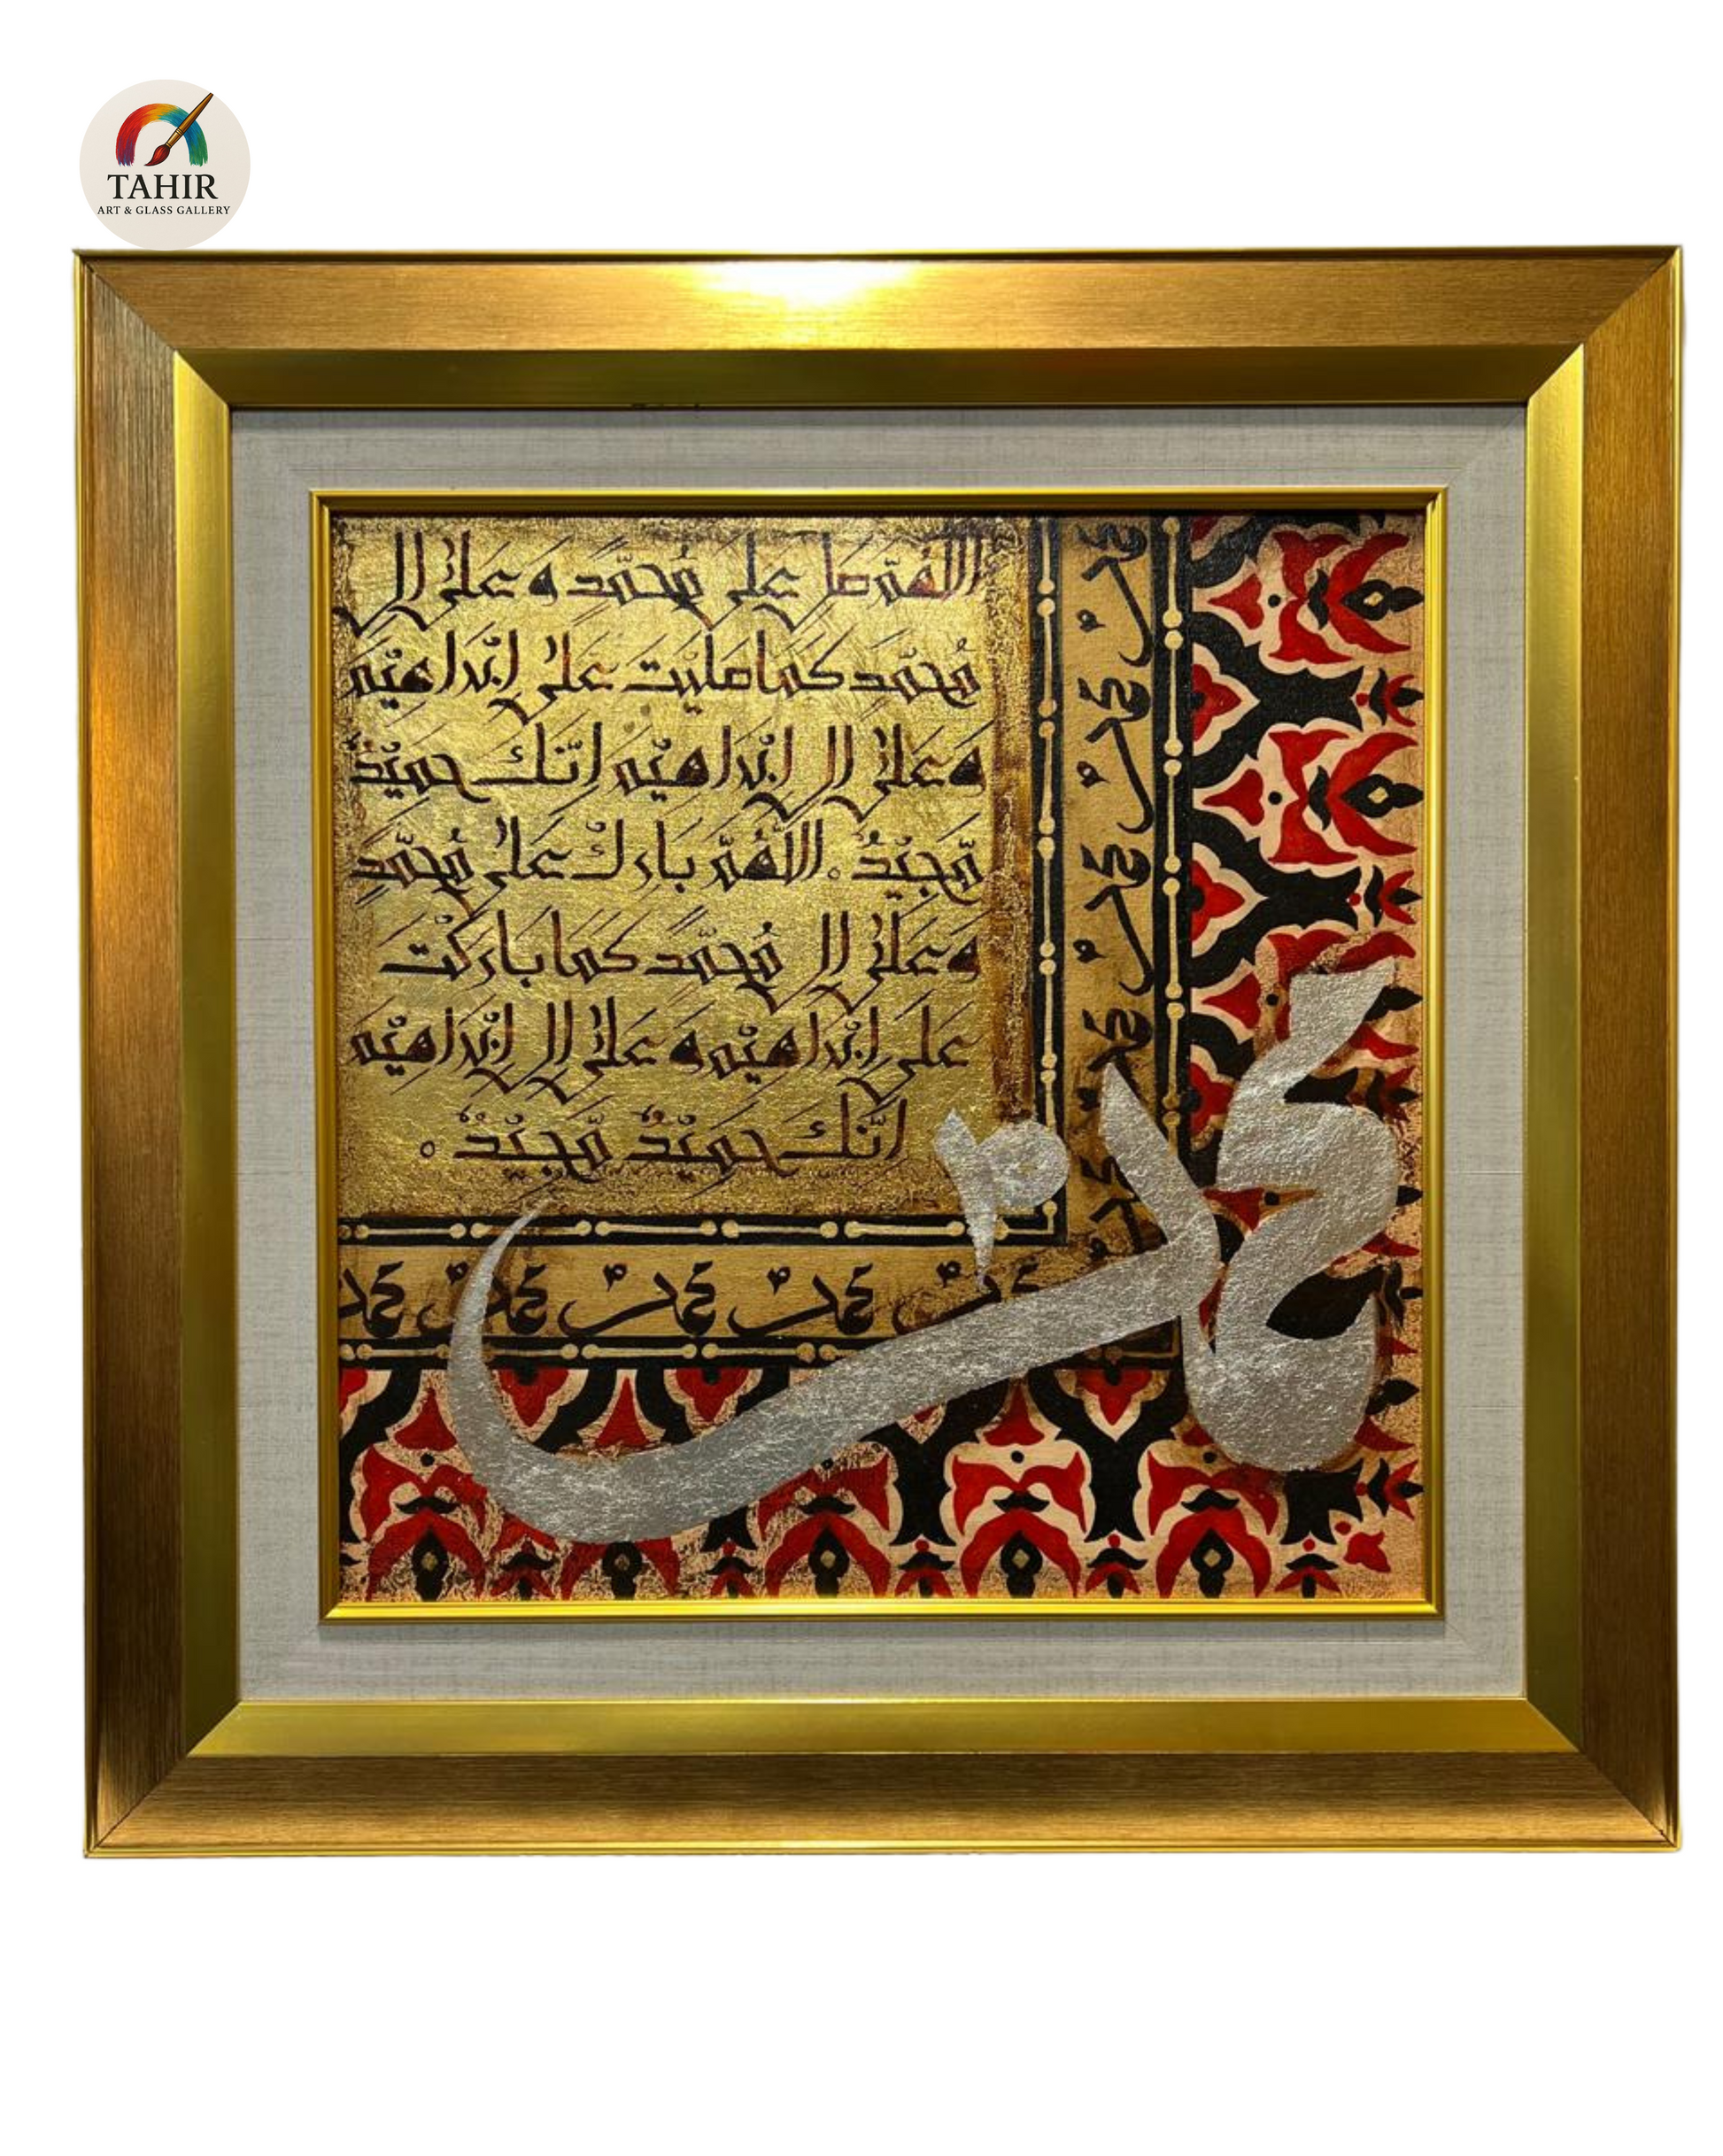 TAHIR
ART & GLASS GALLERY
اللهم صل على محمد و على ال
مُحمّد كما صليت على ابراهيم
وعلى ال ابراهيم انّك حميدٌ
مّجيدٌ . اللّهُمّ بارك على مُحمّدٍ
وَعَلى ال مُحمّد كما باركت
على ابراهيم وَ على ال ابراهيم
انّك حميدٌ مّجيدٌ ه
محمد
محمد محمد محمد محمد محمد
محمد محمد محمد محمد